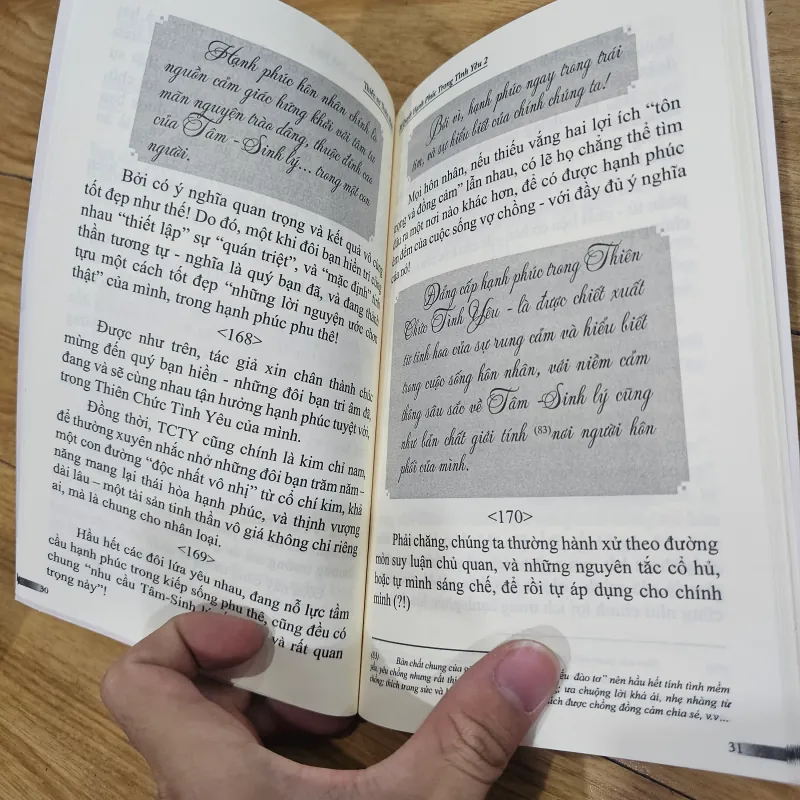 Hạnh phúc hôn nhân chính là
nguồn cảm giác hứng khởi với tâm tư
mãn nguyện trào dâng, thuộc đỉnh cao
của Tâm - Sinh lý... trong một con
người.
Bởi có ý nghĩa quan trọng và kết quả vô cùng
tốt đẹp như thế! Do đó, một khi đôi bạn hiền tri cùng
nhau “thiết lập” sự “quán triệt”, và “mặc định” tinh
thần tương tự - nghĩa là quý bạn đã, và đang thành
tựu một cách tốt đẹp “những lời nguyện ước chơn
thật” của mình, trong hạnh phúc phu thê!
<168>
Được như trên, tác giả xin chân thành chúc
mừng đến quý bạn hiền - những đôi bạn tri âm đã,
đang và sẽ cùng nhau tận hưởng hạnh phúc tuyệt vời,
trong Thiên Chức Tình Yêu của mình.
Đồng thời, TCTY cũng chính là kim chỉ nam,
để thường xuyên nhắc nhở những đôi bạn trăm năm –
một con đường “độc nhất vô nhị” từ cổ chí kim, khả
năng mang lại thái hòa hạnh phúc, và thịnh vượng
dài lâu – một tài sản tinh thần vô giá không chỉ riêng
ai, mà là chung cho nhân loại.
<169>
Hầu hết các đôi lứa yêu nhau, đang nỗ lực tầm
cầu hạnh phúc trong kiếp sống phu thê, cũng đều có
chung “nhu cầu Tâm-Sinh và rất quan
trọng này”!
30
Hạnh Phúc Trong Tình Yêu 2
Bởi vì, hạnh phúc ngay trong trái
tim, và sự hiểu biết của chính chúng ta!
Mọi hôn nhân, nếu thiếu vắng hai lợi ích “tôn
trọng và đồng cảm” lẫn nhau, có lẽ họ chẳng thể tìm
đâu ra một nơi nào khác hơn, để có được hạnh phúc
êm đềm của cuộc sống vợ chồng - với đầy đủ ý nghĩa
của nó!
Đẳng cấp hạnh phúc trong Thiên
Chức Tình Yêu - là được chiết xuất
từ tinh hoa của sự rung cảm và hiểu biết
trong cuộc sống hôn nhân, với niềm cảm
thông sâu sắc về Tâm - Sinh lý cũng
như bản chất giới tính (83) nơi người hôn
phối của mình.
<170>
Phải chăng, chúng ta thường hành xử theo đường
mòn suy luận chủ quan, và những nguyên tắc cổ hủ,
hoặc tự mình sáng chế, để rồi tự áp dụng cho chính
mình (?!)
(83) Bản chất chung của đào tơ” nên hầu hết tính tình mềm
yếu, yêu chồng nhưng rất ưa chuộng lời khả ái, nhẹ nhàng từ
chồng; thích trang sức và được chồng đồng cảm chia sẻ, v.v...
31